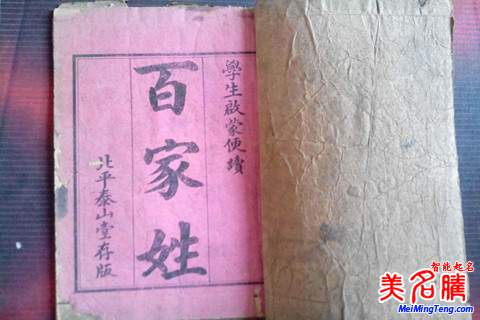 學生啟蒙便讀
百家姓
北平泰山堂存版
智能起名
美名腾
MeiMingTeng.com